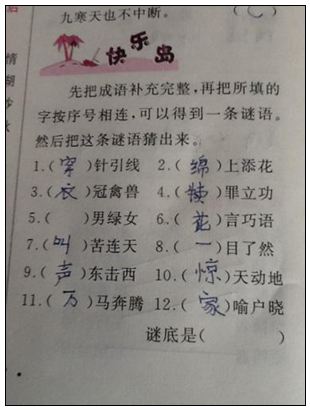 九寒天也不中断。
快乐岛
先把成语补充完整，再把所填的
字按序号相连，可以得到一条谜语。
然后把这条谜语猜出来。
1.(穿)针引线 2.(绵)上添花
3.(衣)冠禽兽 4.( )罪立功
5.( )男绿女 6.(花)言巧语
7.(叫)苦连天 8.(一)目了然
9.(声)东击西 10.(惊)天动地
11.(万)马奔腾 12.(家)喻户晓
谜底是( )